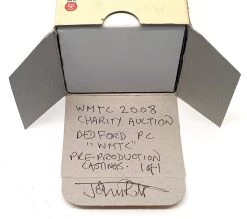 WMTC 2008
CHARITY AUCTION
BEDFORD PC
"WMTC"
PRE-PRODUCTION
CASTINGS. 1 of 1